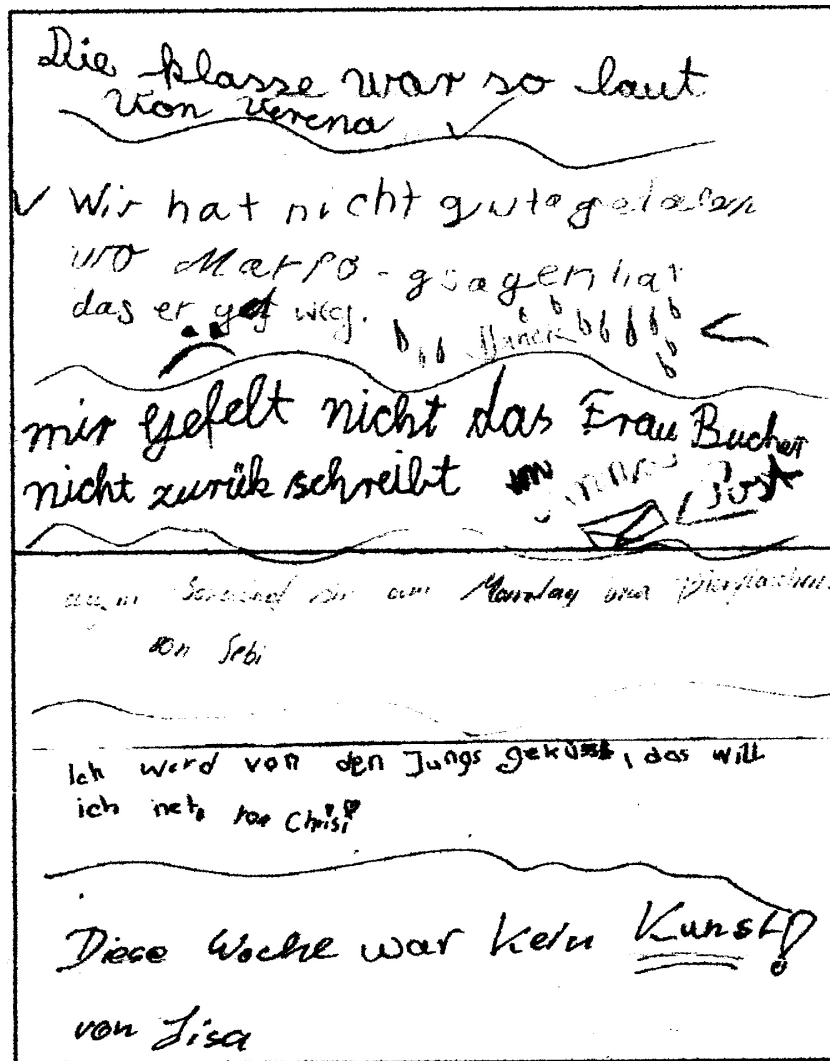 Die Klasse war so laut
Von Verena
Wir hat nicht gute gelasen
wo Marfo - gsagen hat
das er get weg.
mir gefelt nicht das Frau Bucher
nicht zurük schreibt Post
am Montag
von Sebi
Ich werd von den Jungs geküsst, das will
ich net. von Chrisi
Diese Woche war kein Kunst!
von Lisa